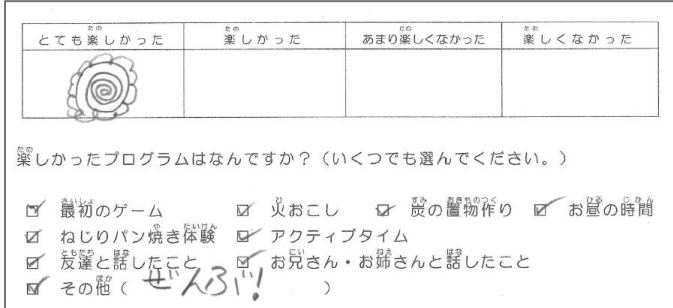 とても楽しかった 楽しかった あまり楽しくなかった 楽しくなかった
楽しかったプログラムはなんですか？（いくつでも選んでください。）
☑ 最初のゲーム ☑ 火おこし ☑ 炭の置物作り ☑ お昼の時間
☑ ねじりパン焼き体験 ☑ アクティブタイム
☑ 友達と話したこと ☑ お兄さん・お姉さんと話したこと
☑ その他（ ぜんぶ! ）